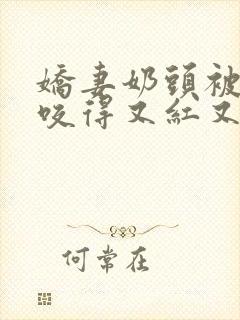 嬌妻奶頭被
咬得又紅又
何常在